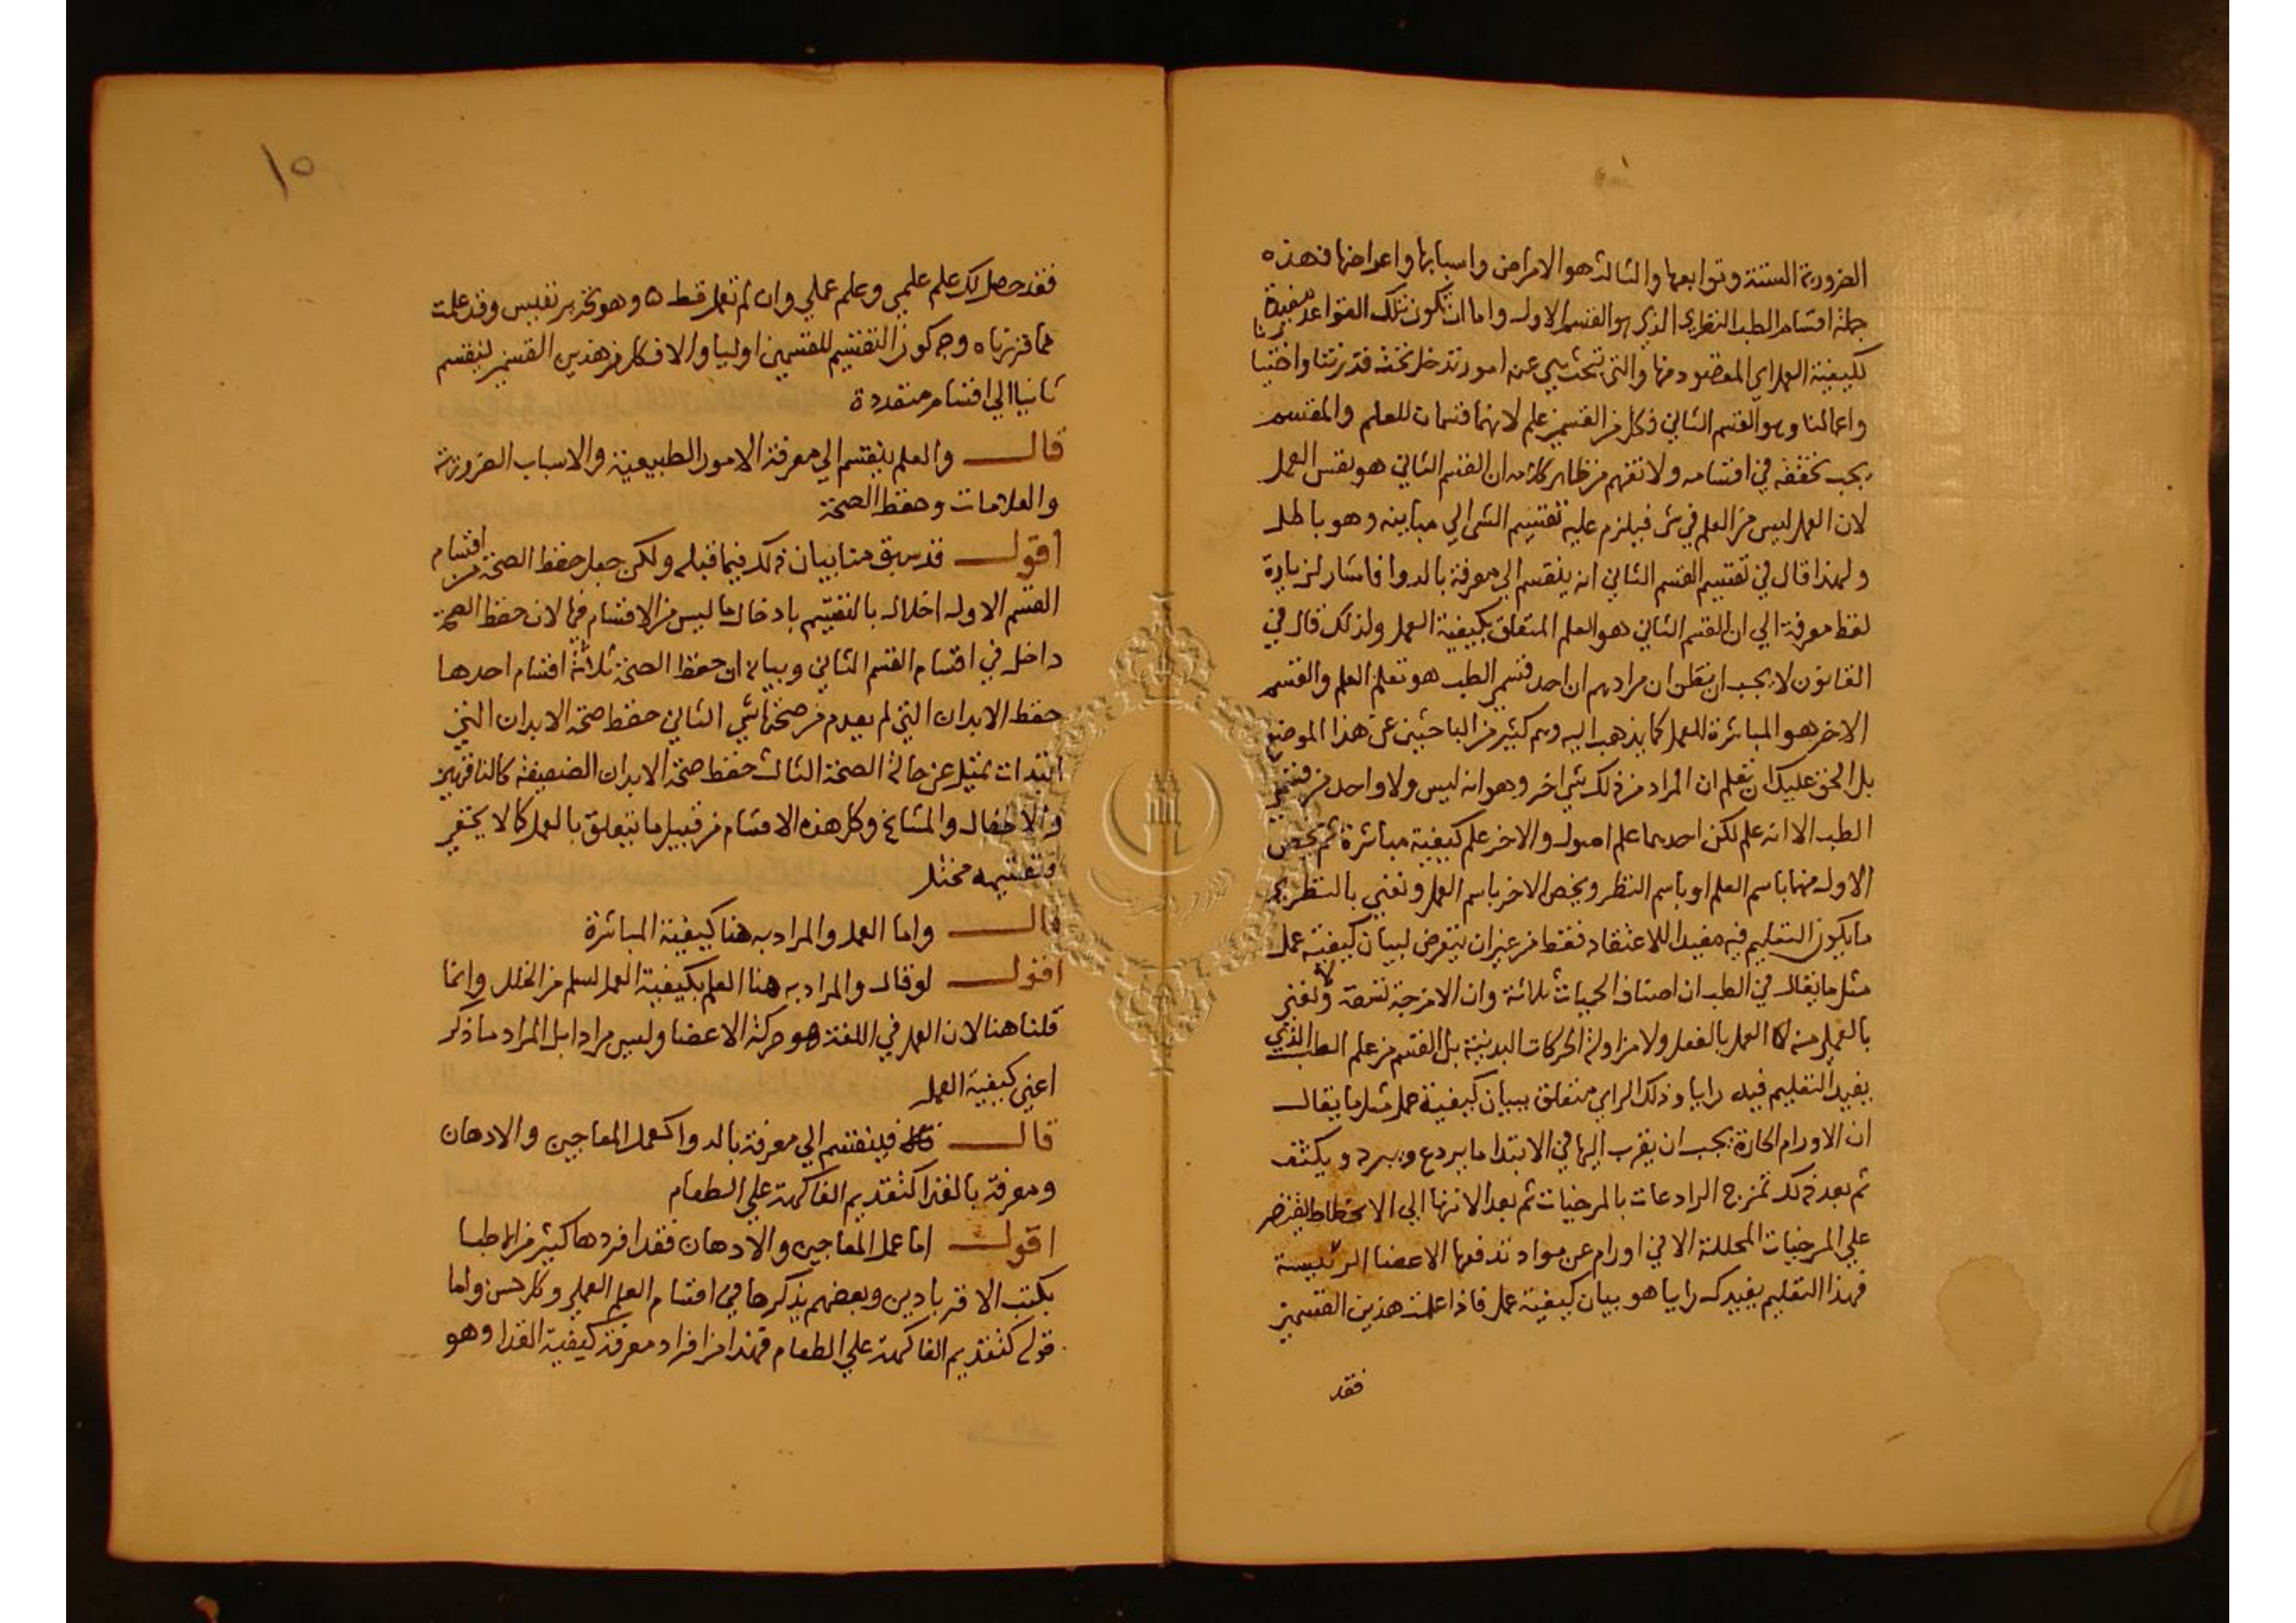 الضرورية الستة وتوابعها والثالث هو الامراض واسبابها واعراضها فهذه
جملة اقسام الطب النظري الذي هو القسم الاول واما ان تكون تلك القواعد مفيدة
لكيفية العمل اي المقصود منها والتي تحث شي عن امور تدخل تحت قدرتنا واختيارنا
واعمالنا وهو القسم الثاني فكل من القسمين علم لانهما قسمان للعلم والمقسم
يجب تحققه في اقسامه ولا تفهم من ظاهر كلامه ان القسم الثاني هو نفس العمل
لان العمل ليس من العلم في شي فيلزم عليه تقسيم الشي الي مباينه وهو باطل
ولهذا قال في تقسيم القسم الثاني انه ينقسم الي معرفة بالدوا فاشار لزيادة
لفظ معرفة الي ان القسم الثاني هو العلم المتعلق بكيفية العمل ولذلك قال في
القانون لا يجب ان يظن ان مرادهم ان احد قسمي الطب هو تعلم العلم والقسم
الاخر هو المباشرة للعمل كما يذهب اليه وهم كثير من الباحثين عن هذا الموضع
بل الحق عليك ان تعلم ان المراد من ذلك شي اخر وهو انه ليس ولا واحد من قسمي
الطب الا انه علم لكن احدهما علم اصول والاخر علم كيفية مباشرة ثم يخص
الاول منهما باسم العلم او باسم النظر ويخص الاخر باسم العمل ونعني بالنظري
ما يكون التعليم فيه مفيدا للاعتقاد فقط من غير ان يتعرض لبيان كيفية عمل
مثل ما يقال في الطب ان اصناف الحميات ثلاثة وان الامزجة تسعة ولا نعني
بالعملي منه العمل بالفعل ولا مزاولة الحركات البدنية بل القسم من علم الطب الذي
يفيد التعليم فيه رايا وذلك الراي متعلق ببيان كيفية عمل مثل ما يقال
ان الاورام الحارة يجب ان يقرب اليها في الابتدا ما يردع ويبرد ويكثف
ثم بعد ذلك تمزج الرادعات بالمرخيات ثم بعد الانتها الي الانحطاط يقتصر
علي المرخيات المحللة الا في اورام عن مواد تدفعها الاعضا الرئيسة
فهذا التعليم يفيدك رايا هو بيان كيفية عمل فاذا علمت هذين القسمين
فقد
١٥
فقد حصل لك علم علمي وعلم عملي وان لم تعمل قط ٥ وهو تحرير نفيس وقد علمت
مما قررناه وجه كون التقسيم للقسمين اوليا والا فكل من هذين القسمين ينقسم
ثانيا الي اقسام متعددة
قال والعلم ينقسم الي معرفة الامور الطبيعية والاسباب الضرورية
والعلامات وحفظ الصحة
اقول قد سبق منا بيان ذلك فيما قبله ولكن جعل حفظ الصحة من اقسام
القسم الاول اخلال بالتقسيم بادخال ما ليس من الاقسام فيها لان حفظ الصحة
داخل في اقسام القسم الثاني وبيانه ان حفظ الصحة ثلاثة اقسام احدها
حفظ الابدان التي لم يعدم من صحتها شي الثاني حفظ صحة الابدان التي
ابتدات تميل عن حالة الصحة الثالث حفظ صحة الابدان الضعيفة كالناقهين
والاطفال والمشايخ وكل هذه الاقسام من قبيل ما يتعلق بالعمل كما لا يخفي
فتقسيمه مختل
قال واما العمل والمراد به هنا كيفية المباشرة
اقول لو قال والمراد به هنا العلم بكيفية العمل لسلم من الخلل وانما
قلنا هنا لان العمل في اللغة هو حركة الاعضا وليس مرادا بل المراد ما ذكر
اعني كيفية العمل
قال فينقسم الي معرفة بالدوا كعمل المعاجين والادهان
ومعرفة بالغذا كتقديم الفاكهة علي الطعام
اقول اما عمل المعاجين والادهان فقد افردها كثير من الاطبا
بكتب الاقرباذين وبعضهم يذكرها في اقسام العلم العملي وكل حسن واما
قوله كتقديم الفاكهة علي الطعام فهذا من افراد معرفة كيفية الغذا وهو